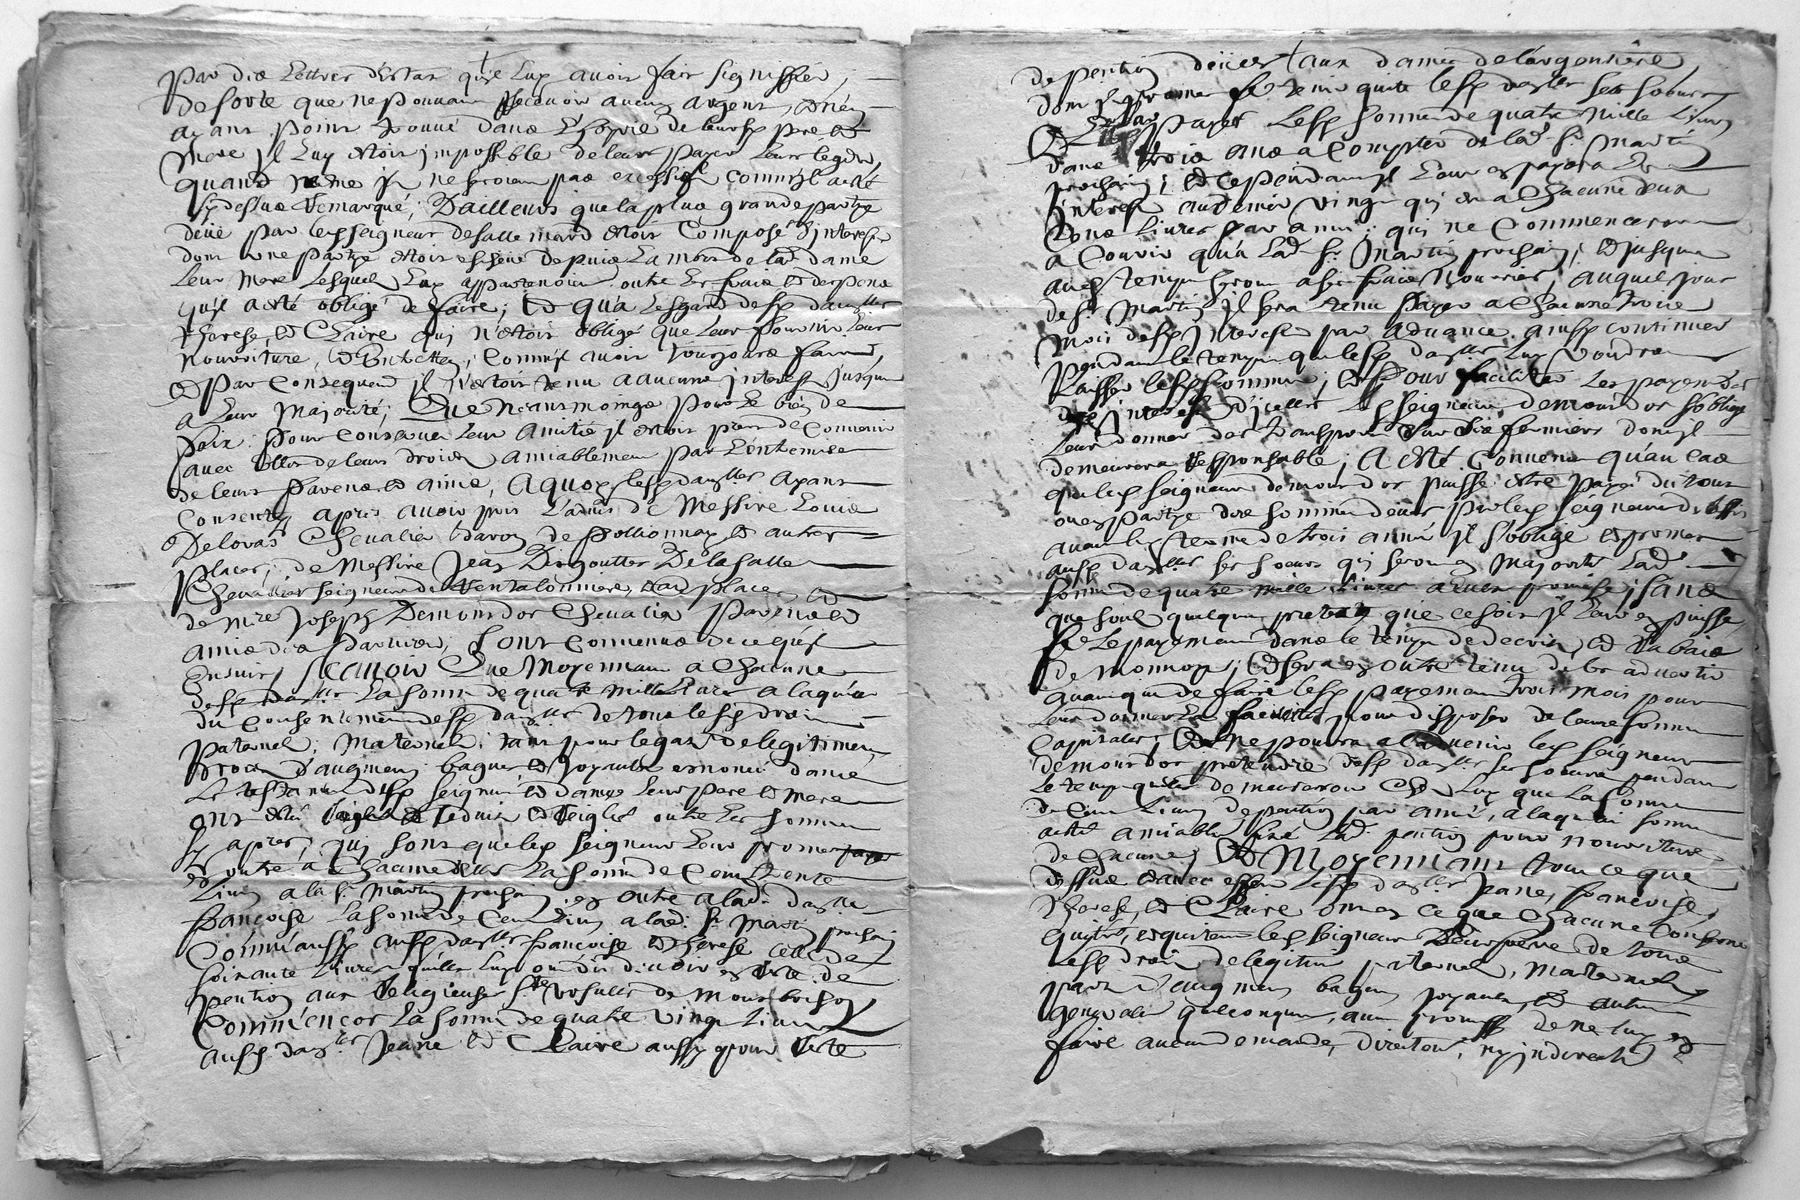 par des lettres d'estat qu'il luy avoir fait signiffier,
de sorte que ne pouvant recevoir aucun argent, et n'en
ayant point trouvé dans l'hoyrie de leursd pere et
mere il luy estoit impossible de leurs payer leurs legats,
quand mesme ils ne seroient pas excessifs comm'il a esté
cy dessus remarqué, D'ailleurs que la plus grande partye
deüe par led seigneur de sallemard estoit composé d'interests
dont une partye estoit escheüe depuis la mort de lad dame
leur mere lesquels luy appartenoint outre les frais et despens
qu'il a esté obligé de faire; et qu'a l'esgard desd dauslles
therese, et Claire qui n'estoit obligé que leur fournir leur
nourriture, et entretien, comm'il avoit tousjours faict,
et par consequend il n'estoit tenu a aucuns interests jusques
a leur majorité; Que neansmoings pour le bien de
paix pour conserver leur amitié il estoit prest de convenir
avec elles de leurs droits amiablement par l'entremise
de leurs parens et amis, A quoy lesd dauslles ayant
consenty apres avoir pris l'advis de Messire Louis
Deloras Chevalier baron de pollionnay et autres
places, de Messire Jean Dugoutter De la salle
Chevallier seigneur de ventalonniere, et au places, et
de mre Joseph Demontdor Chevalier parens et
amis des parties, sont convenus de ce qui
ensuit, Scavoir Que Moyennant a chacune
desd dauslles la somme de quatre mille livres a laquelle
du consentement desd dauslles de tous lesd droits
paternels, Maternels, tant pour legats de legitimes
droits d'augment bagues et joyaux enoncés dans
le testament desd seigneur et dame leur pere et mere
ont esté reiglés et reduits et reiglés outre les sommes
cy apres, qui sont que led seigneur leur promet payer
en outre a chacune d'elles la somme de Cent trente
livres a la st Martin prochain, en outre a lad dauslle
françoise la somme de Cent livres a lad st Martin prochain
Comm'aussy auxd dauslles françoise et therese celle de
soixante livres qu'elles luy ont dit devoir en reste de
pention aux religieuses ste ursulles de montbrison
Comm'encor la somme de quatre vingt livres
auxd dauslles Jeane et Claire aussy pour reste
de pention deüe aux dames de l'argentiere,
dont il promet de tenir quite lesd dauslles ses soeurs
Et leur payer lesd sommes de quatre mille livres
dans trois ans a compter de lad st Martin
prochain; et cependant il leur en payera les
interests au denier vingt qui est a chacune deux
Cens livres par année; qui ne commenceront
a courir qu'a lad st Martin prochain; et jusques
aud temps seront a ses frais nourries, auquel jour
de st Martin il sera tenu payer a chacune trois
mois desd interests par advance, ainsy continuer
pendant le temps que lesd dauslles luy voudront
laisser lesd sommes; et pour faciliter les payements
des interests d'icelles led seigneur demontdor s'oblige
leur donner des transports sur ses fermiers dont il
demeurera responsable; A esté convenu qu'au cas
que led seigneur demontdor puisse estre payé du tout
ou en partye des sommes deües par led seigneur
avant le terme de trois années il s'oblige et promet
auxd dauslles ses soeurs qui seront en majorité lad
somme de quatre mille livres a elles promise, sans
que soubs quelque pretexte que ce soit il leur en puisse
fe le payement dans le temps de decrix, et rabais
de monnoye; et sera en outre tenu de les advertir
avant que de faire lesd payement trois mois pour
leur donner la facilité pour disposer de leurs sommes
Capitales; et ne pourra a l'advenir led seigneur
demontdor pretendre desd dauslles ses soeurs pendant
le temps qu'elles demeureront Chez luy que la somme
de Cent livres de pention par année, a laquelle somme
a esté amiablement fixé lad pention pour nourriture
de chacune; Et Moyennant tout ce que
dessus et avec effect lesd dauslles Jeane, françoise,
therese, et Claire ont en ce que chacune conserne
quitté, et quittent led seigneur leur frere de tous
lesd droits de legitime paternels, Maternels
part d'augment bagues joyaux et autres
generalement quelconques, avec promesse de ne luy en
faire aucune demande, directement, ny indirectement et